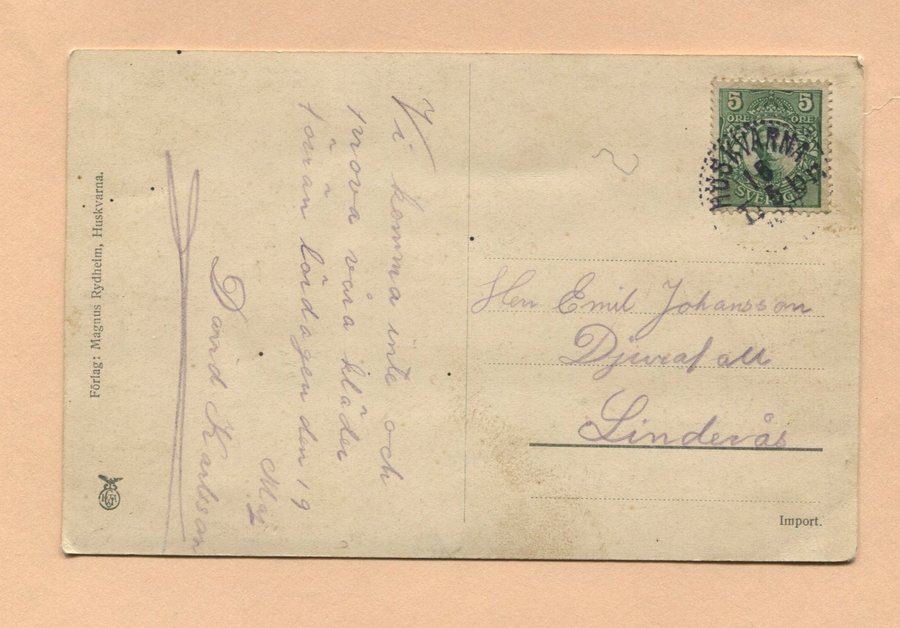 Vi komma inte och
prova våra kläder
förrän lördagen den 19
Maj
David Karlsson
Förlag: Magnus Rydhelm, Huskvarna.
5 5
ÖRE ÖRE
SVERIGE
HUSKVARNA
Herr Emil Johansson
Djurafall
Linderås
Import.